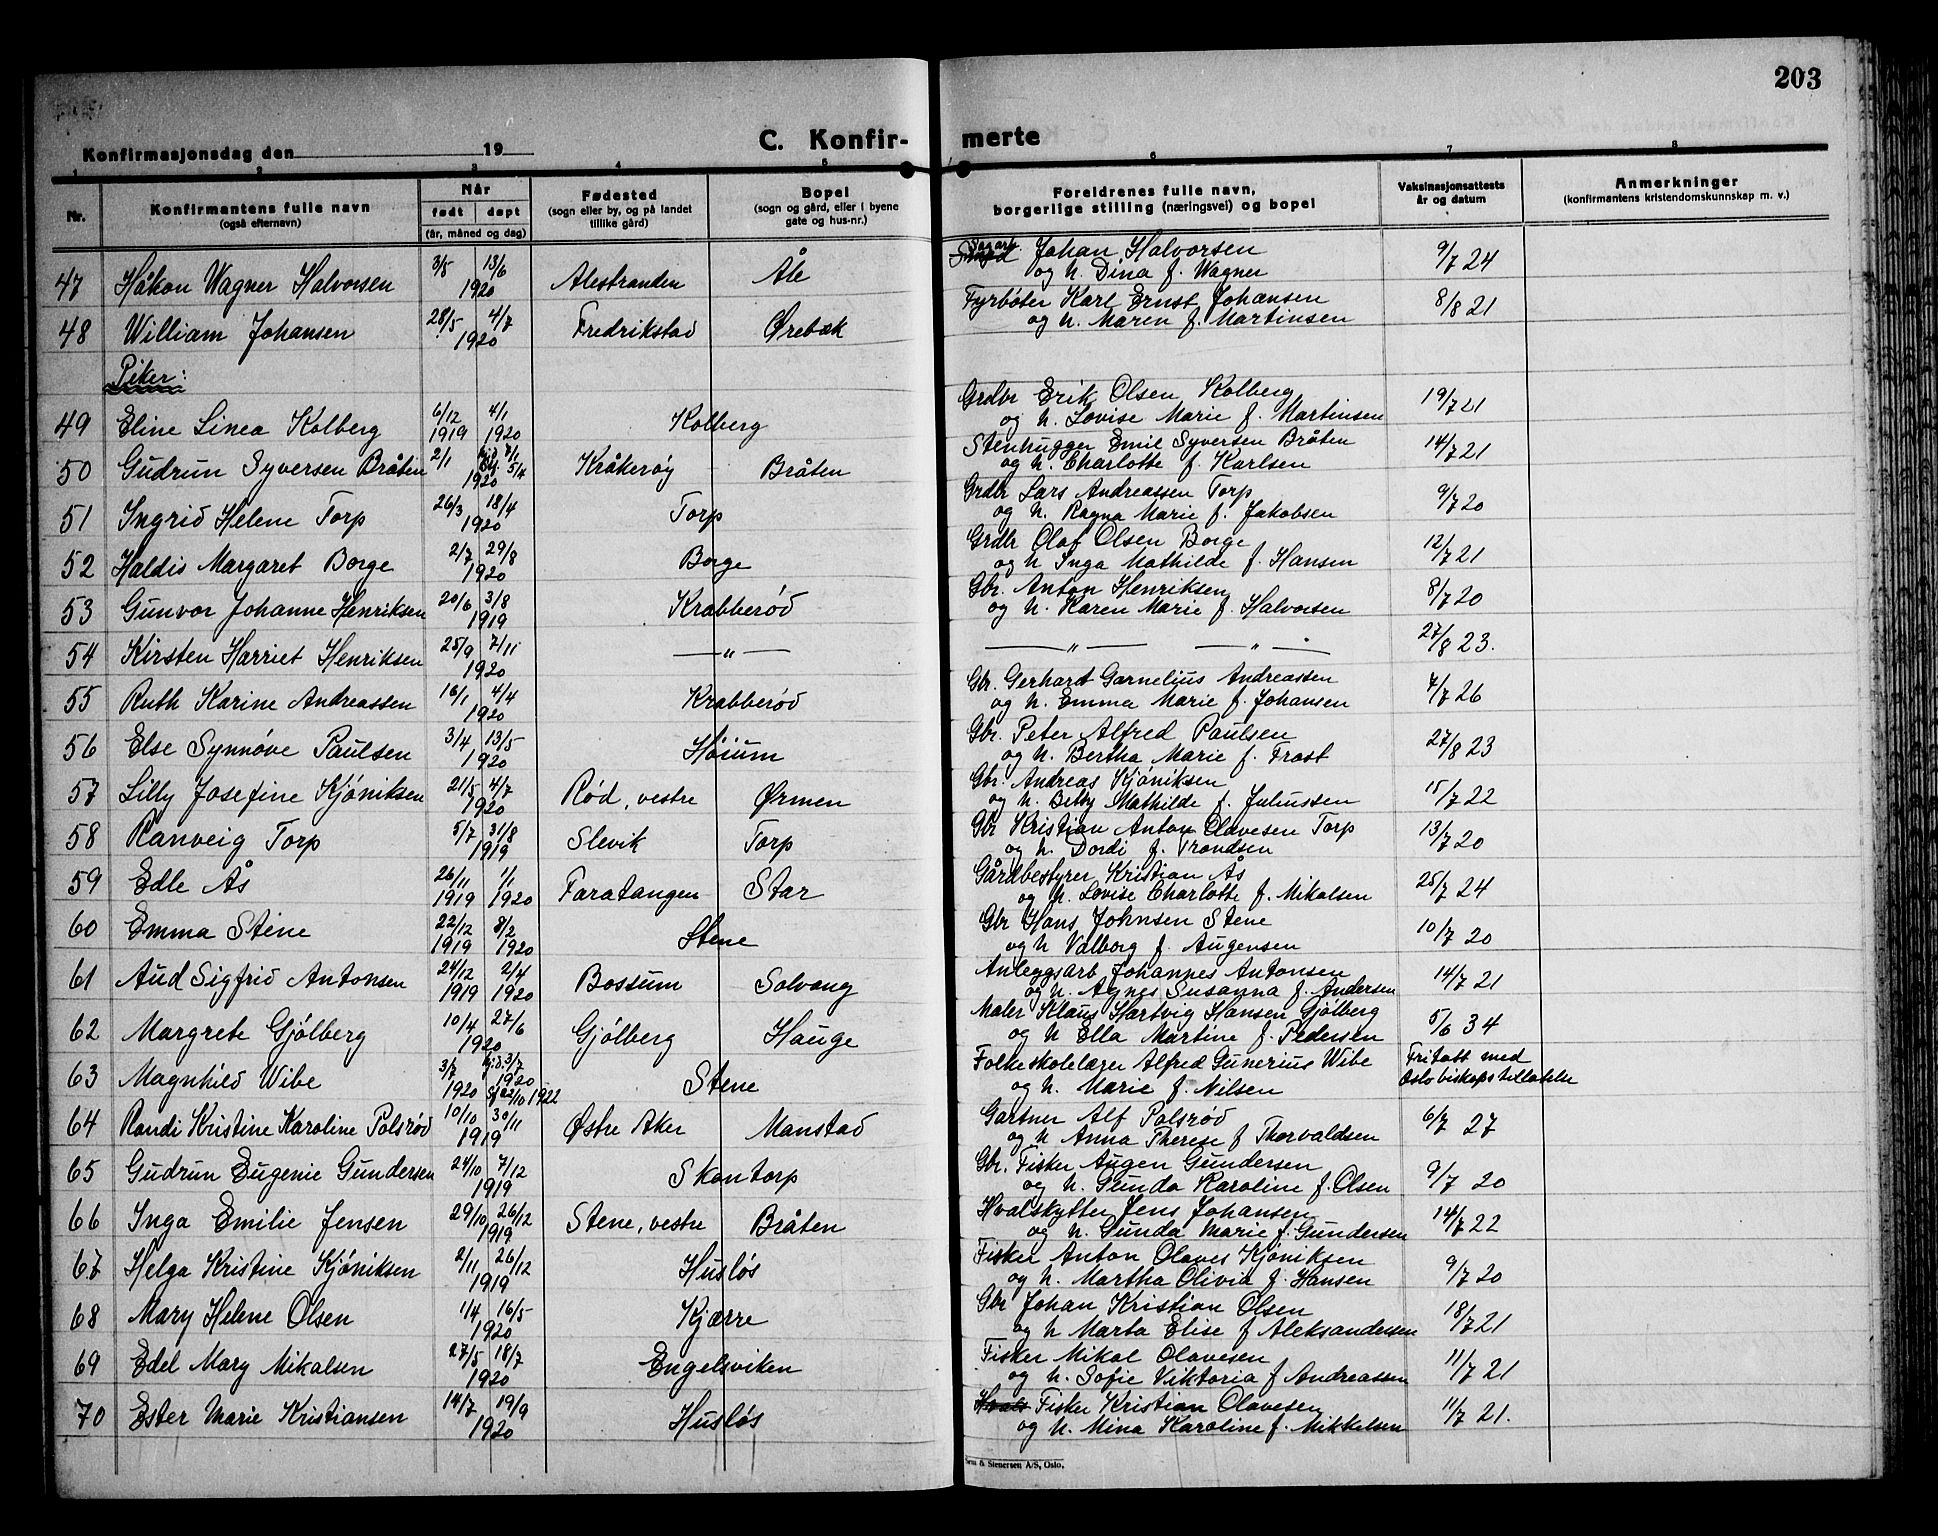 203
C. Konfirmerte
Konfirmasjonsdag den 19
1 2 3 4 5 6 7 8
Nr. | Konfirmantens fulle navn (også efternavn) | Når født døpt (år, måned og dag) | Fødested (sogn eller by, og på landet tillike gård) | Bopel (sogn og gård, eller i byene gate og hus-nr.) | Foreldrenes fulle navn, borgerlige stilling (næringsvei) og bopel | Vaksinasjonsattests år og datum | Anmerkninger (konfirmantens kristendomskunnskap m. v.)
47 Håkon Wagner Halvorsen 3/5 13/6 1920 Alestranden Åle Sagarb. Johan Halvorsen og h. Dina f. Wagner 9/7 24
48 William Johansen 28/5 4/7 1920 Fredrikstad Ørebæk Fyrbøter Karl Ernst Johansen og h. Maren f. Martinsen 8/8 21
Piker:
49 Eline Linea Kolberg 6/12 1919 4/1 1920 Kolberg Grdbr Erik Olsen Kolberg og h. Lovise Marie f. Martinsen 19/7 21
50 Gudrun Syversen Bråten 2/1 7/1 5/4 1920 Kråkerøy Bråten Stenhugger Emil Syversen Bråten og h. Charlotte f. Karlsen 14/7 21
51 Ingrid Helene Torp 26/3 18/4 1920 Torp Grdbr Lars Andreassen Torp og h. Ragna Marie f. Jakobsen 9/7 20
52 Haldis Margaret Borge 2/7 29/8 1920 Borge Grdbr Olaf Olsen Borge og h Inga Mathilde f. Hansen 12/7 21
53 Gunvor Johanne Henriksen 20/6 3/8 1919 Krabberød Gbr. Anton Henriksen og h. Karen Marie f. Halvorsen 8/7 20
54 Kirsten Harriet Henriksen 25/9 7/11 1920 — " — — " — — " — 27/8 23.
55 Ruth Karine Andreassen 16/1 4/4 1920 Krabberød Gbr. Gerhart Garnelius Andreassen og h. Emma Marie f. Johansen 7/7 26
56 Else Synnøve Paulsen 3/4 13/5 1920 Høium Gbr. Peter Alfred Paulsen og h. Bertha Marie f. Frost 27/8 23
57 Lilly Josefine Kjøniksen 21/5 4/7 1920 Rød, vestre Ørmen Gbr. Andreas Kjøniksen og h. Betsy Mathilde f. Juliussen 15/7 22
58 Ranveig Torp 5/7 31/8 1919 Slevik Torp Gbr Kristian Anton Olavesen Torp og h. Dordi f. Trondsen 13/7 20
59 Edle Ås 26/11 1919 1/1 1920 Faratangen Star Gårdbestyrer Kristian Ås og h. Lovise Charlotte f. Mikalsen 25/7 24
60 Emma Stene 22/12 1919 8/2 1920 Stene Gbr Hans Johnsen Stene og h Valborg f. Augensen 10/7 20
61 Aud Sigfrid Antonsen 24/12 1919 2/4 1920 Bossum Solvang Anleggsarb Johannes Antonsen og h. Agnes Susanna f. Andersen 14/7 21
62 Margrete Gjølberg 10/4 27/6 1920 Gjølberg Hauge Maler Klaus Hartvig Hansen Gjølberg og h Ella Martine f. Pedersen 5/6 34
63 Magnhild Wibe 3/7 1920 3/7 1920 22/10 1922 Stene Folkeskolelærer Alfred Gunerius Wibe og h. Marie f. Nilsen Fritatt med Oslo biskops tillatelse
64 Randi Kristine Karoline Palsrød 10/10 30/11 1919 Østre Aker Manstad Gartner Alf Palsrød og h Anna Therese f Thorvaldsen 6/7 27
65 Gudrun Eugenie Gundersen 24/10 7/12 1919 Skontorp Gbr. Fisker Augen Gundersen og h. Gunda Karoline f. Olsen 9/7 20
66 Inga Emilie Jensen 29/10 26/12 1919 Stene, vestre Bråten Hvalskytter Jens Johansen og h. Gunda Marie f. Gundersen 14/7 22
67 Helga Kristine Kjøniksen 2/11 26/12 1919 Husløs Fisker Anton Olaves Kjøniksen og h. Martha Olivia f. Hansen 9/7 20
68 Mary Helene Olsen 1/4 16/5 1920 Kjærre Gbr Johan Kristian Olsen og h Marta Elise f Aleksandersen 18/7 21
69 Edel Mary Mikalsen 27/5 18/7 1920 Engelsviken Fisker Mikal Olavesen og h. Sofie Viktoria f Andreassen 11/7 21
70 Ester Marie Kristiansen 14/7 19/9 1920 Husløs Fisker Kristian Olavesen og h. Mina Karoline f. Mikkelsen 11/7 21.
& Stenersen A/S, Oslo.